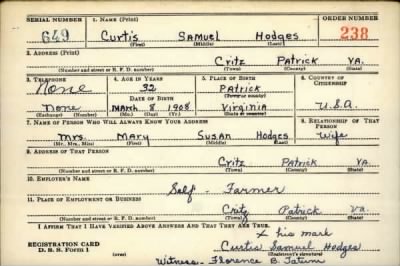 SERIAL NUMBER 1. NAME (Print) ORDER NUMBER
649 Curtis Samuel Hodges 238
(First) (Middle) (Last)
2. ADDRESS (Print)
Critz Patrick VA.
(Number and street or R. F. D. number) (Town) (County) (State)
3. TELEPHONE 4. AGE IN YEARS 5. PLACE OF BIRTH 6. COUNTRY OF CITIZENSHIP
None 32 Patrick
DATE OF BIRTH (Town or county)
None March 8 1908 Virginia U.S.A.
(Exchange) (Number) (Mo.) (Day) (Yr.) (State or country)
7. NAME OF PERSON WHO WILL ALWAYS KNOW YOUR ADDRESS 8. RELATIONSHIP OF THAT PERSON
Mrs. Mary Susan Hodges Wife
(Mr., Mrs., Miss) (First) (Middle) (Last)
9. ADDRESS OF THAT PERSON
Critz Patrick Va.
(Number and street or R. F. D. number) (Town) (County) (State)
10. EMPLOYER'S NAME
Self - Farmer
11. PLACE OF EMPLOYMENT OR BUSINESS
Critz Patrick Va.
(Number and street or R. F. D. number) (Town) (County) (State)
I AFFIRM THAT I HAVE VERIFIED ABOVE ANSWERS AND THAT THEY ARE TRUE.
x his mark
REGISTRATION CARD Curtis Samuel Hodges
D. S. S. Form 1 (over) (Registrant's signature)
Witness - Florence B. Tatum